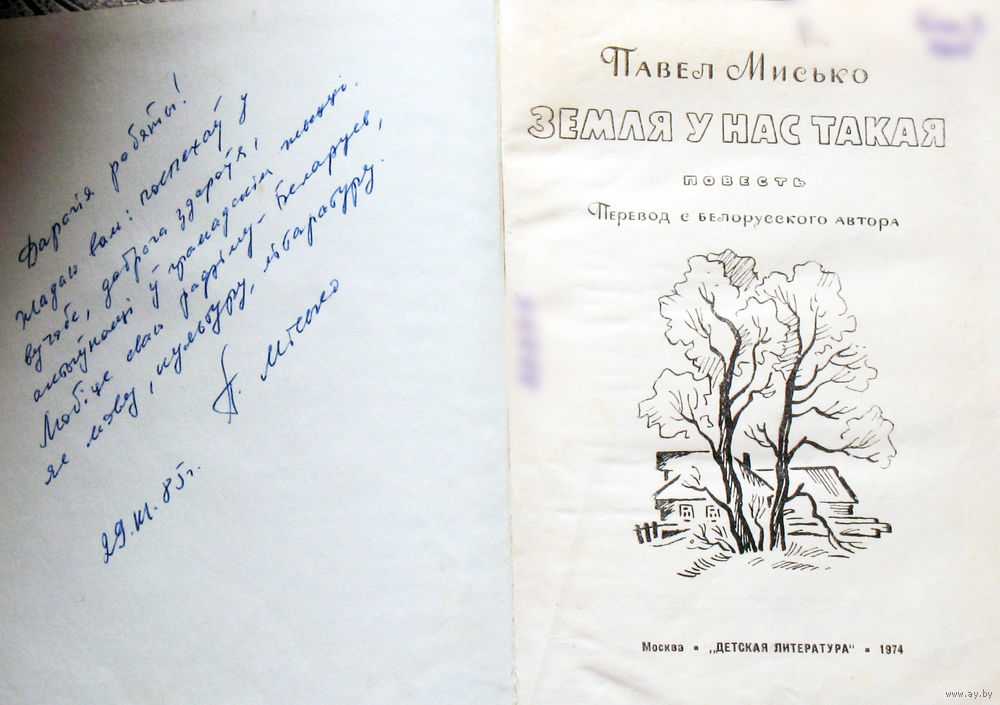 Дарагія рабяты!
Жадаю вам: поспехаў у
вучобе, добрага здароўя,
актыўнасці ў грамадскім жыцці.
Любіце сваю радзіму - Беларусь,
яе мову, культуру, літаратуру.
П. Місько
29.XI.85г.
Павел Мисько
ЗЕМЛЯ У НАС ТАКАЯ
ПОВЕСТЬ
Перевод с белорусского автора
Москва ▪ „ДЕТСКАЯ ЛИТЕРАТУРА“ ▪ 1974
www.ay.by